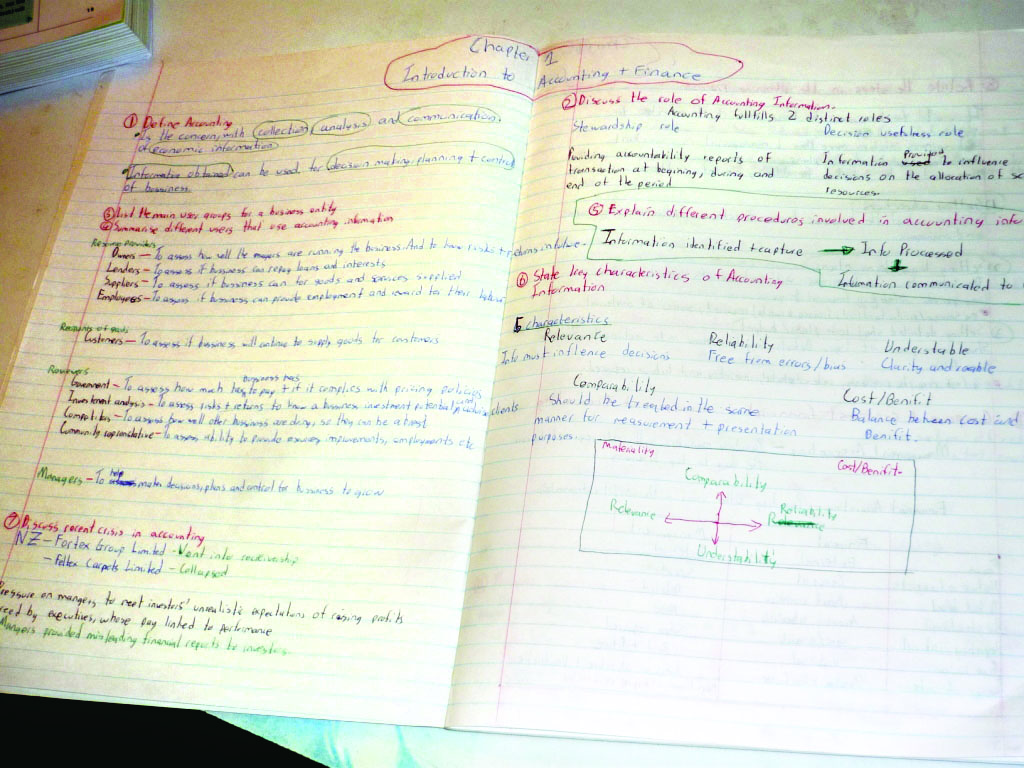 Chapter 1
Introduction to Accounting + Finance
① Define Accounting
• Is the concern with collection, analysis and communication
of economic information
• Information obtained can be used for decision making, planning + control
of bussiness.
③ List the main user groups for a business entity
④ Summarise different users that use accounting information
Resource Providers
Owners - To assess how well the magers are running the business. And to know risks + returns in future.
Lenders - To assess if business can repay loans and interests
Suppliers - To assess if business can for goods and services supplied
Employees - To assess if business can provide employment and reward for their
Recievers of goods
Customers - To assess if business will continue to supply goods for customers
Reviewers
business has
Government - To assess how much to pay + if it complies with pricing policies
Investment analysis - To assess risks + returns to know a business investment potential clients
Competitors - To assess how well other business are doing, so they can be
Community representative - To assess ability to provide improvements, employments etc
help
Managers - To make decisions, plans and control for business to grow
⑦ Discuss recent crisis in accounting
NZ - Fortex Group Limited - Went into receivership
- Feltex Carpets Limited - Collapsed
Pressure on mangers to meet investors' unrealistic expectations of raising profits
by executives, whose pay linked to performance
Mangers provided misleading financial reports to investors
② Discuss the role of Accounting Information.
Acounting fullfills 2 distinct roles
Stewardship role Decision usefulness role
Providing accountability reports of
transaction at begining, during and
end of the period
Information Provided to influence
decisions on the allocation of
resources.
⑤ Explain different procedures involved in accounting
Information identified + capture → Info Processed
Information communicated to
⑥ State key characteristics of Accounting
Information
5 characteristics
Relevance Reliability Understable
Info must influence decisions Free from errors/bias Clarity and
Comparability Cost/Benifit
Should be treated in the same
manner for measurment + presentation
purposes.
Balance between cost and
Benifit.
Materiality Cost/Benifit
Comparability
Relevance Reliability
Understability